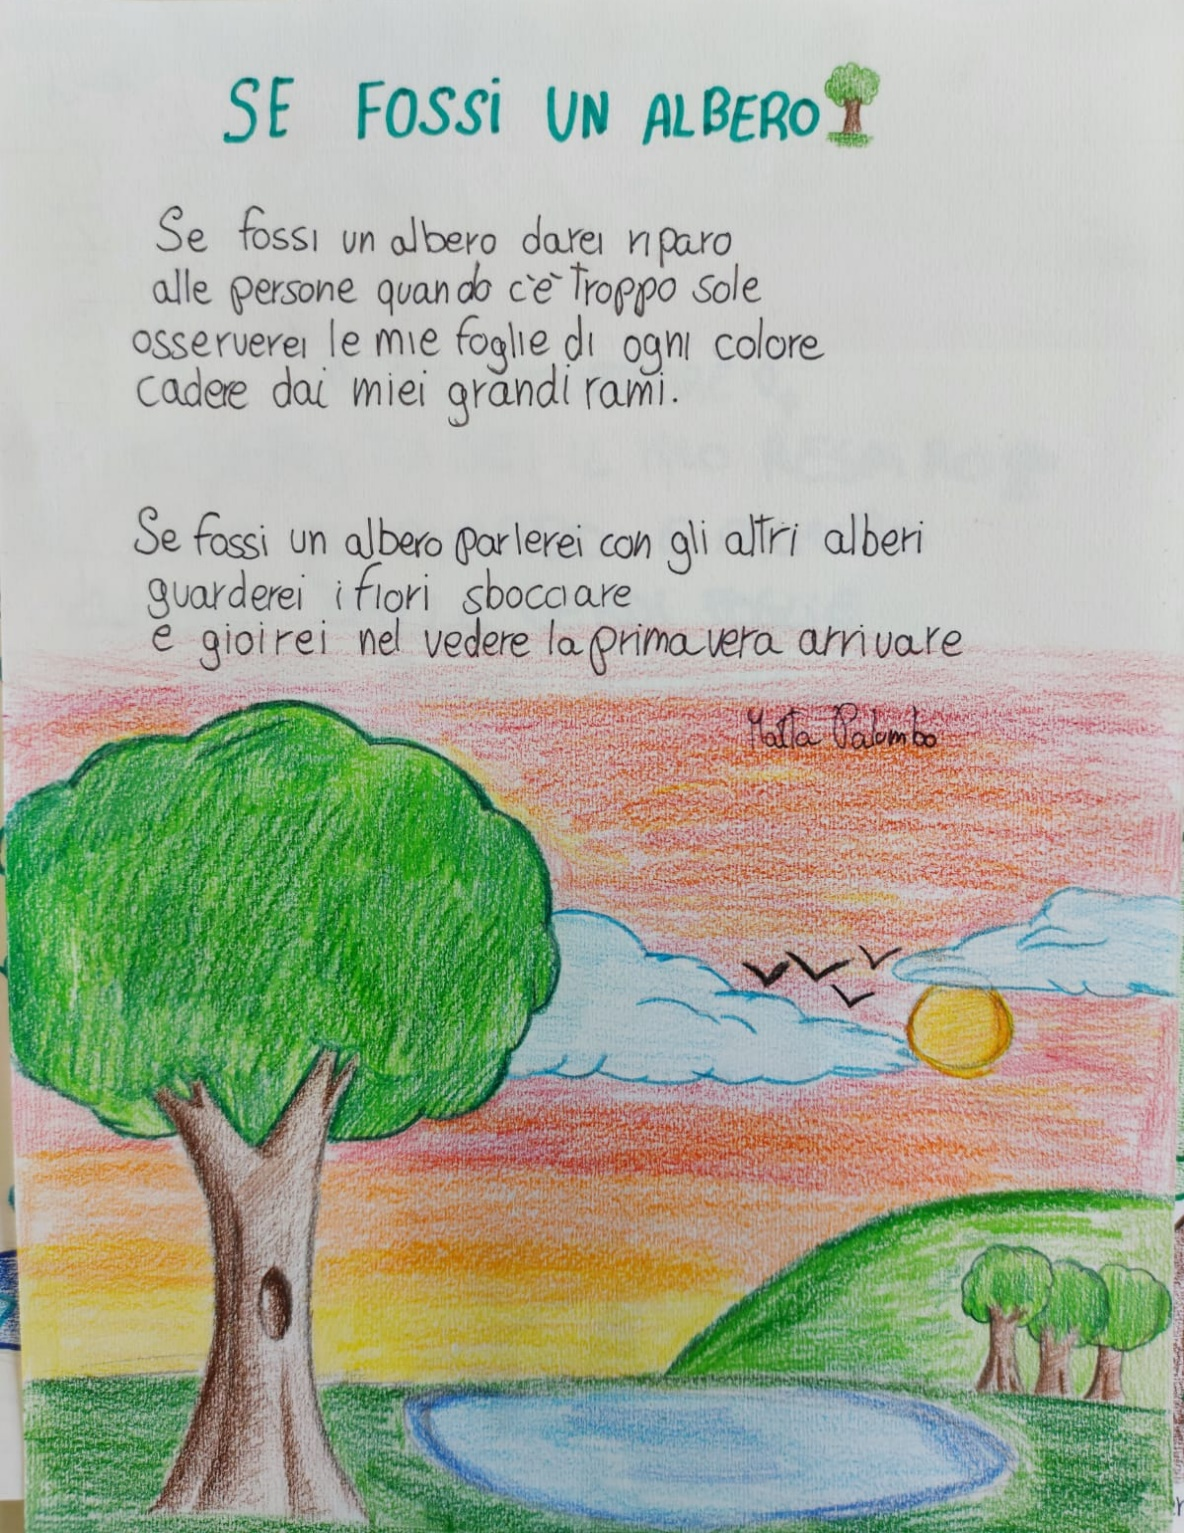 SE FOSSI UN ALBERO
Se fossi un albero darei riparo
alle persone quando c'è troppo sole
osserverei le mie foglie di ogni colore
cadere dai miei grandi rami.
Se fossi un albero parlerei con gli altri alberi
guarderei i fiori sbocciare
e gioirei nel vedere la primavera arrivare
Palombo